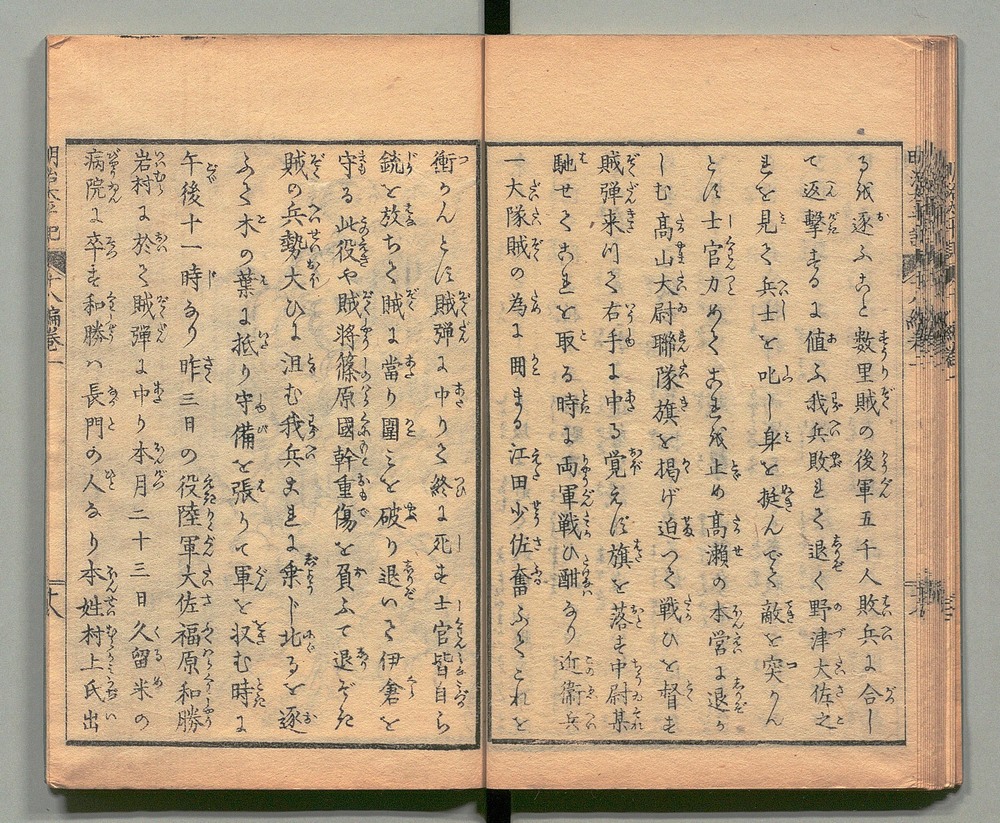 るを逐ふこと数里賊の後軍五千人敗兵に合し
て返撃するに値ふ我兵敗れて退く野津大佐之
れを見て兵士を叱し身を挺んでて敵を突かん
とす士官力めてこれを止め髙瀬の本営に退か
しむ髙山大尉聯隊旗を掲げ迫つて戦ひを督す
賊弾来川て右手に中る覚えず旗を落す中尉某
馳せてこれを取る時に両軍戦ひ酣なり近衛兵
一大隊賊の為に囲まる江田少佐奮ふてこれを
衝かんとす賊弾に中りて終に死す士官皆自ら
銃を放ちて賊に當り圍みを破り退いて伊倉を
守る此役や賊将篠原國幹重傷を負ふて退ぞき
賊の兵勢大ひに沮む我兵これに乗じ北るを逐
ふて木の葉に抵り守備を張りて軍を収む時に
午後十一時なり昨三日の役陸軍大佐福原和勝
岩村に於て賊弾に中り本月二十三日久留米の
病院に卒す和勝ハ長門の人なり本姓村上氏出
明治太平記
十八編巻一